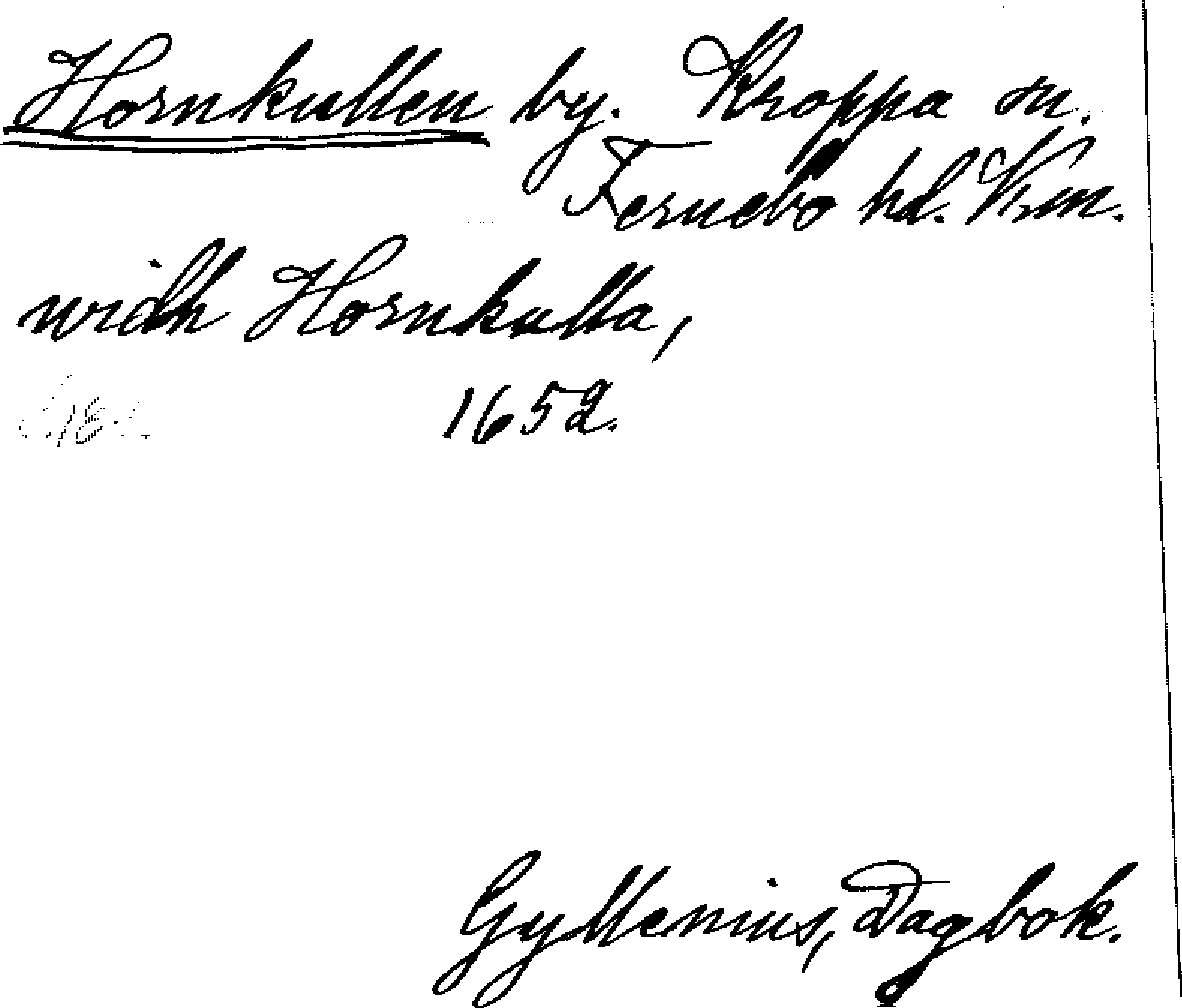 Hornkullen by. Kroppa sn.
Fernebo hd. Vrm.
widh Hornkulla,
1652.
Gyllenius, Dagbok.